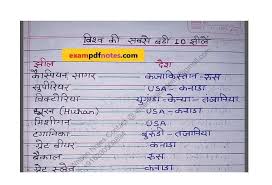 विश्व की सबसे बडी 10 झीलें
exampdfnotes.com
झील देश
कैस्पियन सागर - कजाकिस्तान - रूस
सुपीरियर - USA - कनाडा
विक्टोरिया - युगाडा - केन्या - तंजानिया
ह्यूरन (Huhan) - USA - कनाडा
मिशीगन - USA - कनाडा
टंगानिका - बुरुंडी - तंजानिया
ग्रेट बीयर - कनाडा
बैकाल - रूस
ग्रेट स्लेव - कनाडा